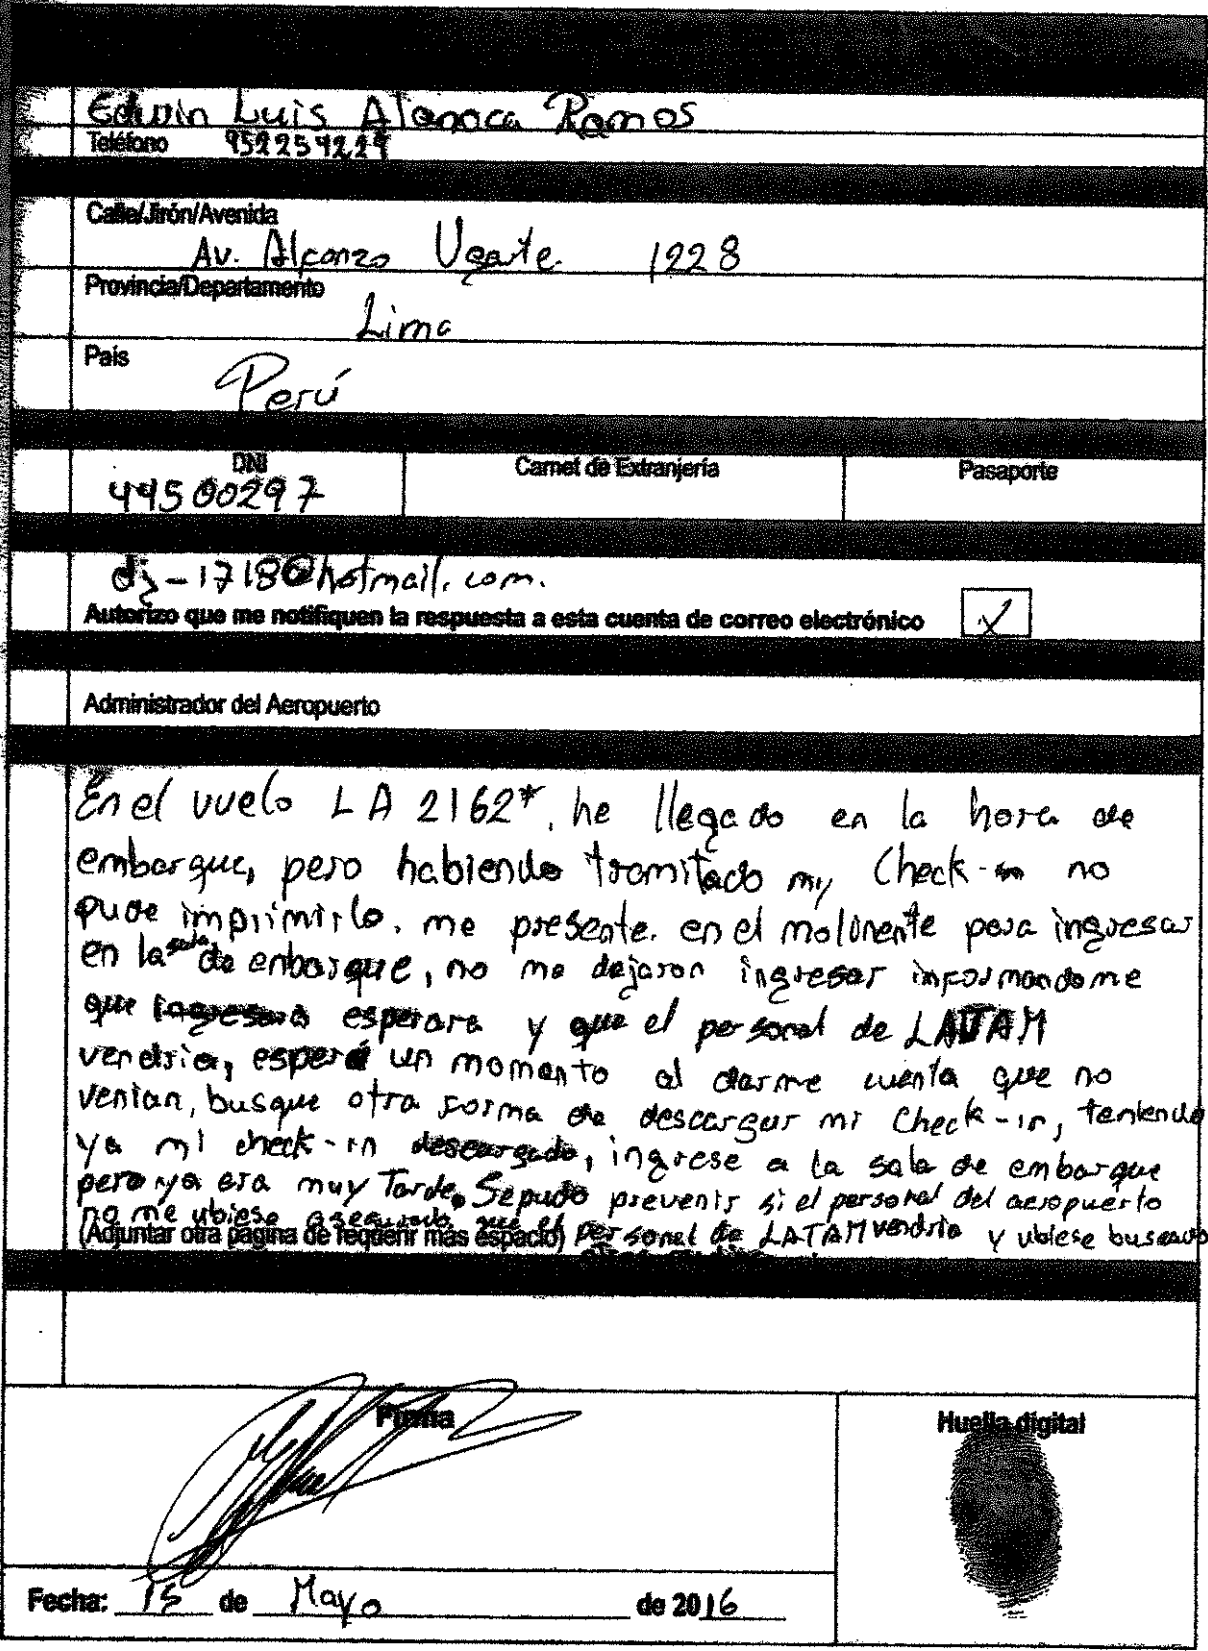 Edwin Luis Alanoca Ramos
Teléfono
Calle/Jirón/Avenida
Av. Alfonzo Ugarte. 1228
Provincia/Departamento
Lima
País
Perú
DNI Carnet de Extranjería Pasaporte
44500297
dj-1718@hotmail.com.
Autorizo que me notifiquen la respuesta a esta cuenta de correo electrónico X
Administrador del Aeropuerto
En el vuelo LA 2162*, he llegado en la hora de
embarque, pero habiendo tramitado my Check-in no
pude imprimirlo. me presente. en el molinente para ingresar
en la sala de enbarque, no me dejaron ingresar informandome
que esperara y que el personal de LATAM
vendria, esperé un momento al darme cuenta que no
venian, busque otra forma de descargar mi Check-in, teniendo
ya mi check-in descargado, ingrese a la sala de embarque
pero ya era muy Tarde. Sepudo prevenir si el personal del aeropuerto
no me ubiese asegurado que el personal de LATAM vendria y ubiese buscado
(Adjuntar otra página de requerir más espacio)
Firma Huella digital
Fecha: 15 de Mayo de 2016